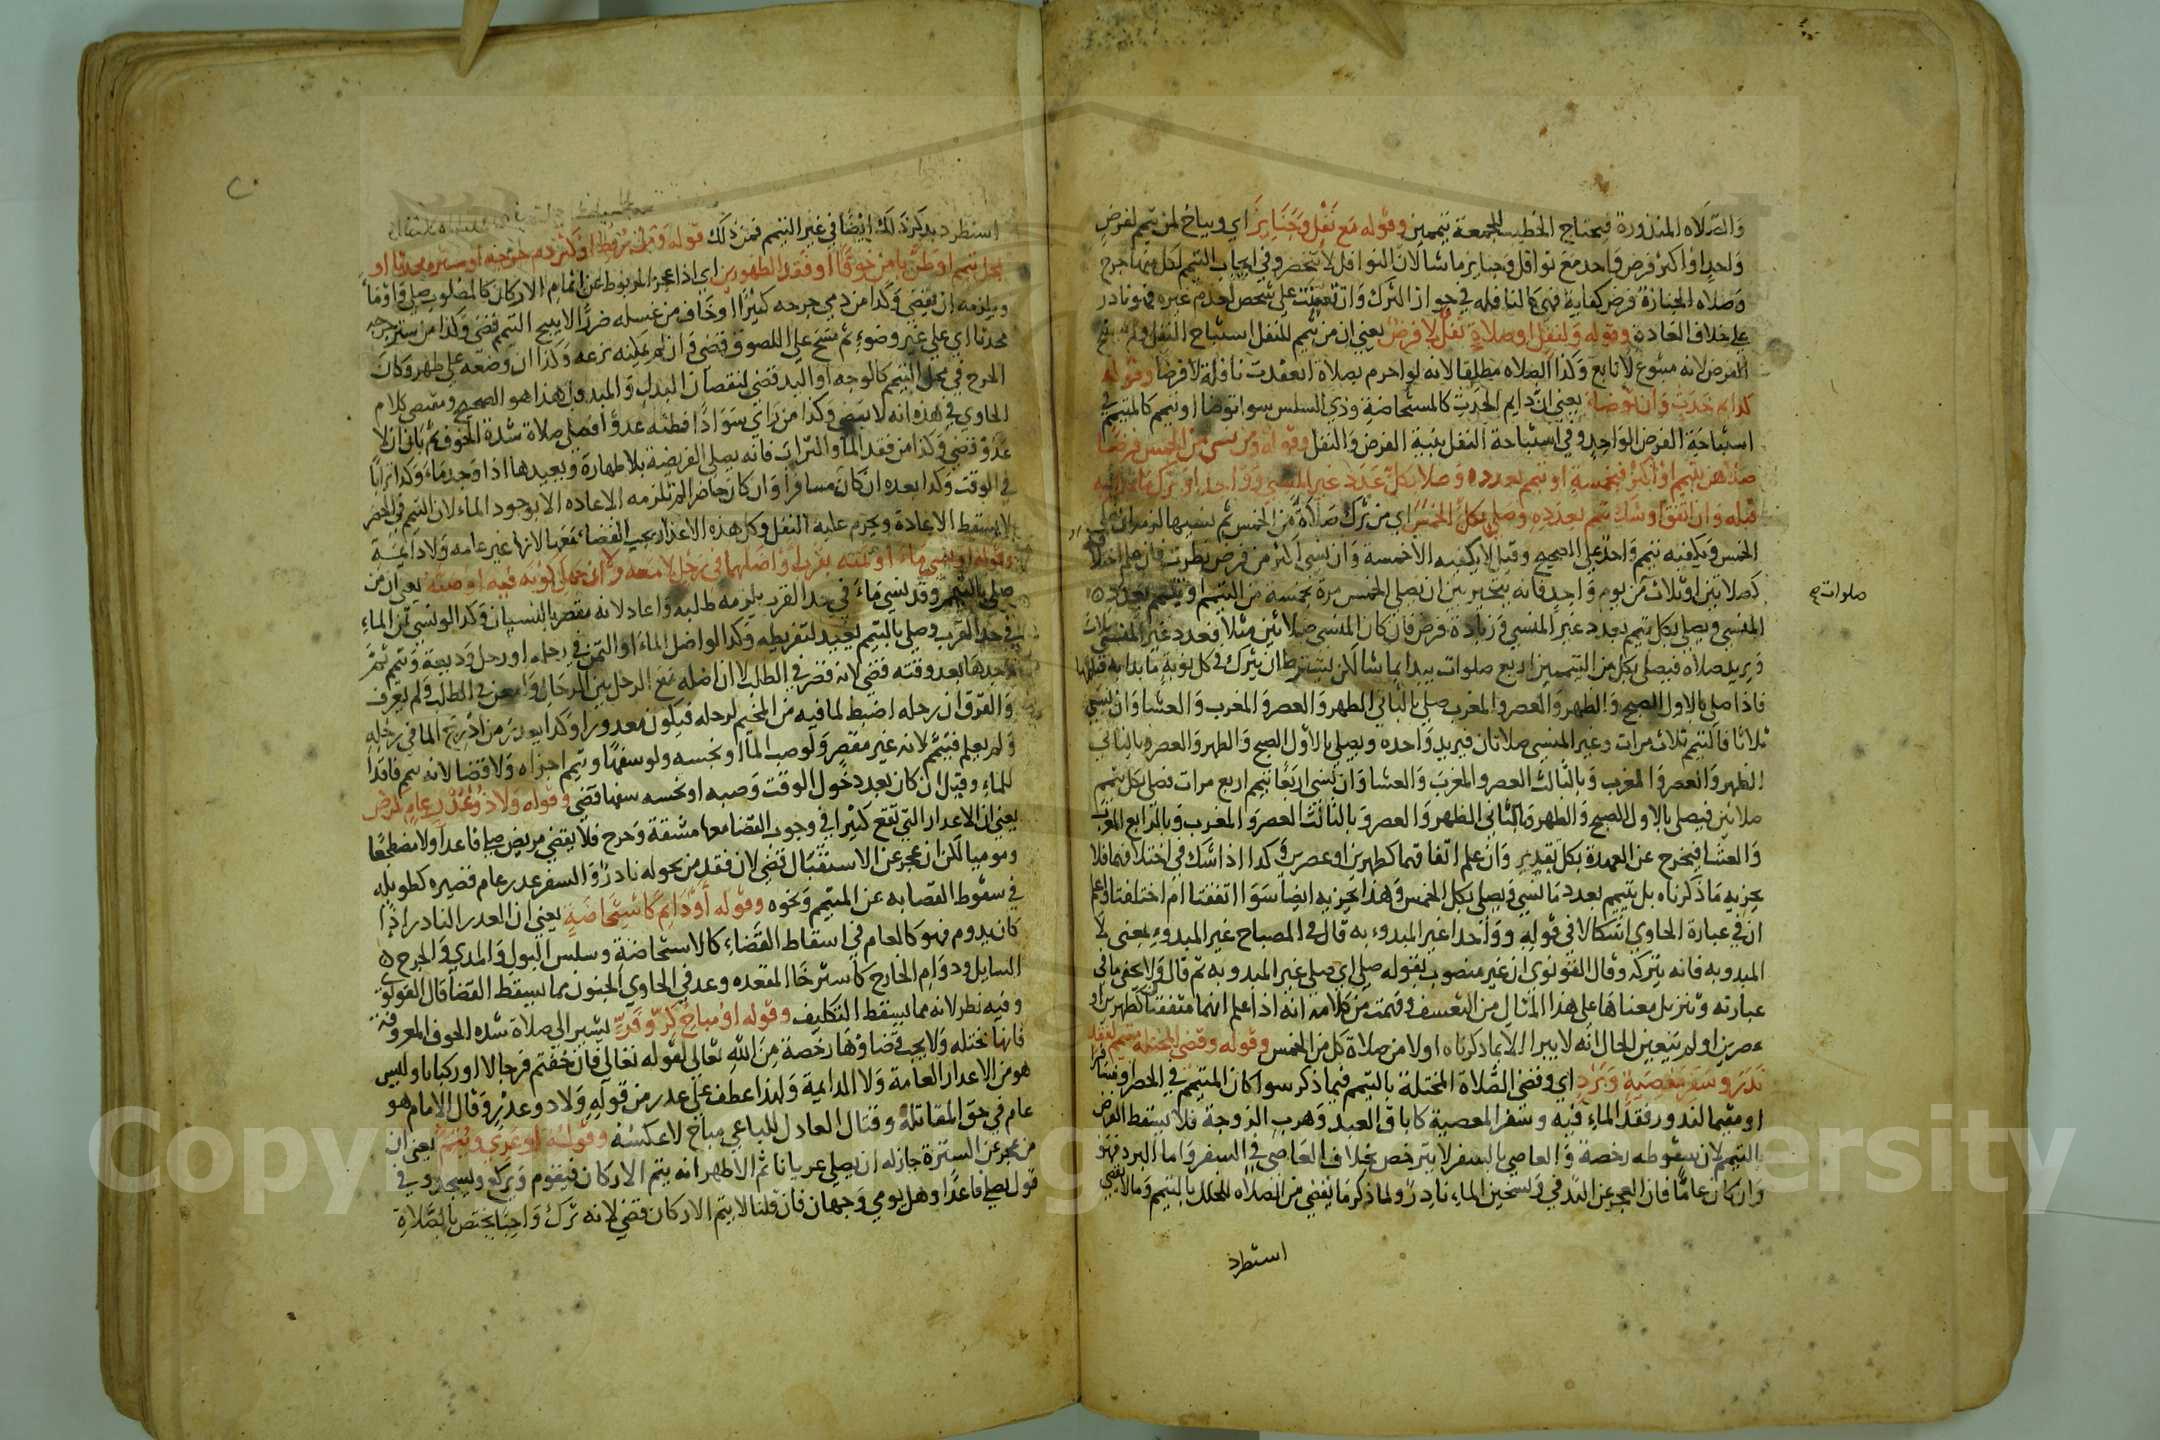 والصلاه المنذورة فيحتاج الخطيب للجمعة تيممين وقوله مع نفل وجنايز اي ويباح لمن تيمم لفرض
واحد او اكثر فرض واحد مع نوافل وجنايز ما شا لان النوافل لا تنحصر وفي ايجاب التيمم لكل منها حرج
وصلاه الجنازة فرض كفاية فهي كالنافله في جواز الترك وان تعينت على شخص لعدم غيره فهو نادر
على خلاف العادة وقوله ولنفل او صلاة نفل لا فرض يعني ان من تيمم للنفل استباح النفل ولم يستبح
الفرض لانه متبوع لا تابع وكذا الصلاه مطلقا لانه لو احرم بصلاة انعقدت نافلة لا فرضا وقوله
كدايم حدث وان توضأ يعني ان دايم الحدث كالمستحاضة وذي السلس سوا توضا او تيمم كالمتيمم في
استباحة الفرض الواحد وفي استباحة النفل بنية الفرض والنفل وقوله ومن نسي من الخمس فرضا
صلاهن بتيمم او اكثر فبخمسة او تيمم بعدده وصلا بكل عدد غير المنسي وواحدا وترك ما بدا به
قبله وان اتفق او شك تيمم بعدده وصلي بكل الخمس اي من ترك صلاة من الخمس ثم نسيها لزمه ان يصلي
الخمس ويكفيه تيمم واحد على الصحيح وقيل لا يكفيه الا خمسة وان نسي اكثر من فرض نظرت فان علم اختلافها
كصلاتين او ثلاث من يوم واحد فانه يتخير بين ان يصلي الخمس مرة بخمسة من التيمم او يتيمم بعدد
صلوات صح
المنسي ويصلي بكل تيمم بعدد غير المنسي وزيادة فرض فان كان المنسي صلاتين مثلا فعدد غير المنسي ثلاث
ويزيد صلاه فيصلي بكل من التيممين اربع صلوات يبدا بما شا لكن يشترط ان يترك في كل نوبة ما بدا به قبلها
فاذا صلي بالاول الصبح والظهر والعصر والمغرب صلي بالثاني الظهر والعصر والمغرب والعشا وان نسي
ثلاثا فالتيمم ثلاث مرات وغير المنسي صلاتان فيزيد واحدة ويصلي بالاول الصبح والظهر والعصر وبالثاني
الظهر والعصر والمغرب وبالثالث العصر والمغرب والعشا وان نسي اربعا تيمم اربع مرات فصلي بكل تيمم
صلاتين فيصلي بالاول الصبح والظهر وبالثاني الظهر والعصر وبالثالث العصر والمغرب وبالرابع المغرب
والعشا فيخرج عن العهدة بكل تقدير وان علم اتفاقهما كظهرين او عصرين وكذا اذا شك في اختلافهما فلا
يجزيه ما ذكرناه بل يتيمم بعدد ما نسي ويصلي بكل الخمس وهذا يجزيه ايضا سوا اتفقتا ام اختلفتا واعلم
ان في عبارة الحاوي اشكالا في قوله وواحدا غير المبدوء به قال في المصباح غير المبدوء بمعنى لا
المبدو به فانه يتركه وقال القونوي ان غير منصوب بقوله صلي اي صلي غير المبدو به ثم قال ولا يخفى ما في
عبارته وتنزيل معناها على هذا المثال من التعسف وفهمت من كلامه انه اذا علم انهما متفقتان كظهرين او
عصرين او لم يتعين الحال انه لا يبرا الا بما ذكرناه اولا من صلاة كل من الخمس وقوله وقضي المختلة متيمم لفقد
ندر وسفر معصية وبرد اي وقضى الصلاة المختلة بالتيمم فيما ذكر سوا كان المتيمم في الحضر او مسافرا
او مقيما لندور فقد الماء فيه وسفر المعصية كاباق العبد وهرب الزوجة فلا يسقط الفرض
بالتيمم لان سقوطه رخصة والعاصي بالسفر لا يترخص بخلاف العاصي في السفر واما البرد فهو
وان كان عاما فان العجز عن التدفي وتسخين الماء نادر ولما ذكر ما يقضي من الصلاه المختل بالتيمم وما لا يقضي
استطرد
استطرد بذكر ذلك ايضا في غير التيمم فمن ذلك قوله وقضي مربوط او كثر دم جرحه او ستره محدثا او
بمحل تيمم او ظن يامن خوفا او فقد الطهورين اي اذا عجز المربوط عن اتمام الاركان كالمصلوب صلى واومأ
ويلزمه ان يقضي وكذا من دمي جرحه كثيرا وخاف من غسله ضررا لا يبيح التيمم قضى وكذا من ستر جرحه
محدثا اي على غير وضوء ثم مسح على اللصوق قضى وان لم يمكنه نزعه وكذا ان وضعه على طهر وكان
الجرح في محل التيمم كالوجه او اليد قضى لنقصان البدل والمبدل هذا هو الصحيح ومقتضى كلام
الحاوي في هذه انه لا يقضي وكذا من راى سوادا فظنه عدوا فصلى صلاة شدة الخوف ثم بان ان لا
عدو قضى وكذا من فقد الما والتراب فانه يصلي الفريضة بلا طهارة ويعيدها اذا وجد ماء وكذا ترابا
في الوقت وكذا بعده ان كان مسافرا وان كان حاضرا لم تلزمه الاعاده الا بوجود الماء لان التيمم في الحضر
لا يسقط الاعادة ويحرم عليه النفل وكل هذه الاعذار يجب القضاء معها لانها غير عامه ولا دايمة
وقوله او نسي ماء او ثمنه بقرب واضلهما في رحل لا معه ولا ان جهل كونه فيه او صبه يعني ان من
صلى بالتيمم وقد نسي ماء في حد القرب يلزمه طلبه واعاد لانه مقصر بالنسيان وكذا لو نسي ثمن الماء
في حد القرب وصلى بالتيمم يعيد لتفريطه وكذا لو اضل الماء او الثمن في رحله او رحل وديعة وتيمم ثم
وجدها بعد وقته قضى لانه قصر في الطلب لا ان اضله مع الرحل بين الرحال وامعن في الطلب ولم يعرف
والفرق ان رحله اضبط لما فيه من المخيم لرحله فيكون معذورا وكذا يعذر من ادرج الما في رحله
ولم يعلم فتيمم لانه غير مقصر ولو صب الما او نجسه ولو سفها وتيمم اجزاه ولا قضا لانه تيمم فاقدا
للماء وقيل ان كان بعد دخول الوقت وصبه او نجسه سفها قضى وقوله ولا ذو عذر عام كمرض
يعني ان الاعذار التي تقع كثيرا في وجوب القضا معها مشقة وحرج فلا يقضي مريض صلى قاعدا ولا مضطجعا
وموميا لكن ان عجز عن الاستقبال قضى لان فقد من يحوله نادر والسفر عذر عام قصيره كطويله
في سقوط القضا به عن المتيمم ونحوه وقوله او دايم كاستحاضة يعني ان العذر النادر اذا
كان يدوم فهو كالعام في اسقاط القضاء كالاستحاضة وسلس البول والمذي والجرح
السايل ودوام الخارج كاسترخا المقعده وعد في الحاوي الجنون مما يسقط القضا قال القونوي
وفيه نظر لانه مما يسقط التكليف وقوله او مباح كر وفر يشير الى صلاة شده الخوف المعروفة
فانها مختله ولا يجب قضاؤها رخصة من الله تعالى لقوله تعالى فان خفتم فرجالا او ركبانا وليس
هو من الاعذار العامة ولا الدايمة ولهذا عطف على عذر من قوله ولا ذو عذر وقال الامام هو
عام في حق المقاتلة وقتال العادل للباغي مباح لا عكسه وقوله او عري ويتمم يعني ان
من عجز عن السترة جاز له ان يصلي عريانا ثم الاظهر انه يتم الاركان فيقوم ويركع ويسجد وفي
قول يصلي قاعدا وهل يومي وجهان فان قلنا لا يتم الاركان قضى لانه ترك واجبا يختص بالصلاة